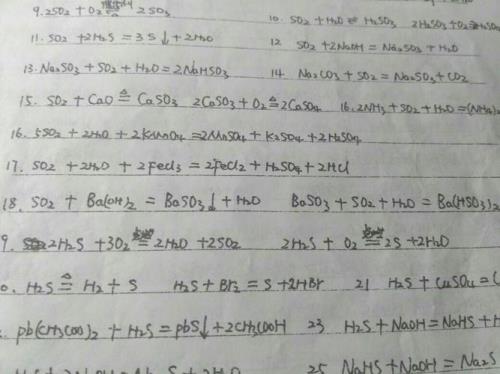 9. 2SO2 + O2 ⇌ 2SO3 10. SO2 + H2O ⇌ H2SO3 2H2SO3 + O2 = H2SO
11. SO2 + 2H2S = 3S↓ + 2H2O 12 SO2 + 2NaOH = Na2SO3 + H2O
13. Na2SO3 + SO2 + H2O = 2NaHSO3 14. Na2CO3 + SO2 = Na2SO3 + CO2
15. SO2 + CaO ≜ CaSO3 2CaSO3 + O2 ≜ 2CaSO4 16. 2NH3 + SO2 + H2O = (NH4)2
16. 5SO2 + 2H2O + 2KMnO4 = 2MnSO4 + K2SO4 + 2H2SO4
17. SO2 + 2H2O + 2FeCl3 = 2FeCl2 + H2SO4 + 2HCl
18. SO2 + Ba(OH)2 = BaSO3↓ + H2O BaSO3 + SO2 + H2O = Ba(HSO3)2
9. 2H2S + 3O2 点燃= 2H2O + 2SO2 2H2S + O2 点燃= 2S + 2H2O
0. H2S ≜ H2 + S H2S + Br2 = S + 2HBr 21 H2S + CuSO4 = C
pb(CH3COO)2 + H2S = pbS↓ + 2CH3COOH 23 H2S + NaOH = NaHS + H
S + 2H2O 25 NaHS + NaOH = Na2S